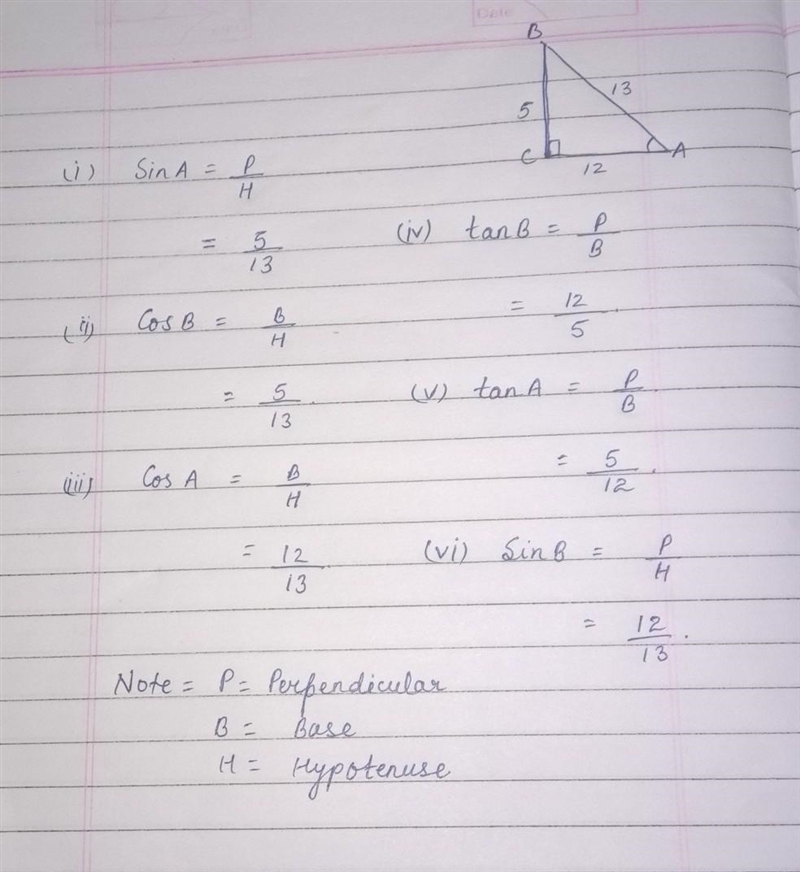 Date
B
13
5
C
A
12
(i) SinA = P/H
= 5/13
(ii) CosB = B/H
= 5/13.
(iii) Cos A = B/H
= 12/13
(iv) tanB = P/B
= 12/5.
(v) tanA = P/B
= 5/12.
(vi) SinB = P/H
= 12/13.
Note = P = Perpendicular
B = Base
H = Hypotenuse